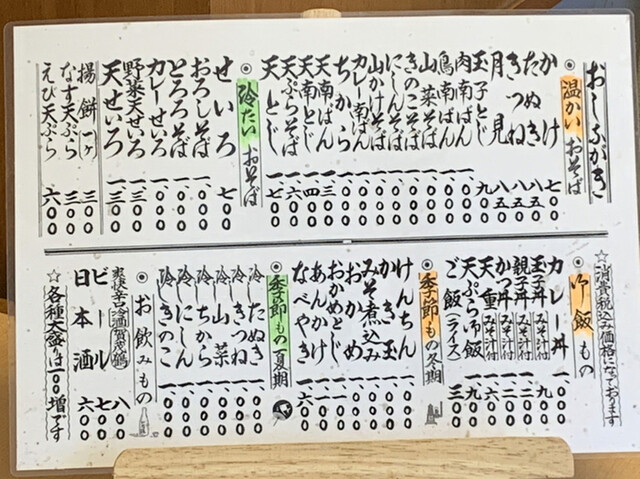 おしながき
◎温かいおそば
かけ 七〇〇
たぬき 八五〇
きつね 八五〇
月見 八五〇
玉子とじ 九〇〇
肉南ばん 一、〇〇〇
鳥南ばん 一、〇〇〇
山菜そば 一、〇〇〇
きのこそば 一、〇〇〇
にしんそば 一、〇〇〇
山かけそば 一、〇〇〇
カレー南ばん 一、〇〇〇
ちから 一、〇〇〇
天南ばん 一、三〇〇
天南とじ 一、四〇〇
天ぷらそば 一、六〇〇
天とじ 一、七〇〇
◎冷たいおそば
せいろ 七〇〇
おろしそば 一、〇〇〇
とろろそば 一、〇〇〇
カレーせいろ 一、〇〇〇
野菜天せいろ 一、三〇〇
天せいろ 一、三〇〇
揚餅一ヶ 三〇〇
なす天ぷら 三〇〇
えび天ぷら 六〇〇
☆消費税込み価格になっております
◎御飯もの
カレー丼 一、〇〇〇
玉子丼 みそ汁付 九〇〇
親子丼 みそ汁付
かつ丼 みそ汁付
天重 みそ汁付 一、六〇〇
天ぷら御飯
ご飯(ライス) 三〇〇
◎季節もの冬期
けんちん 一、〇〇〇
かき玉 一、〇〇〇
みそ煮込み 一、〇〇〇
おかめ 一、〇〇〇
おかめとじ 一、一〇〇
あんかけ 一、一〇〇
なべやき 一、六〇〇
◎季節もの夏期
冷したぬき 一、〇〇〇
冷しきつね 一、〇〇〇
冷し山菜 一、〇〇〇
冷しちから 一、〇〇〇
冷しにしん 一、〇〇〇
冷しきのこ 一、〇〇〇
◎お飲みもの
爽快辛口冷酒賀茂鶴 八〇〇
ビール 七〇〇
日本酒 六〇〇
☆各種大盛りは一〇〇増です